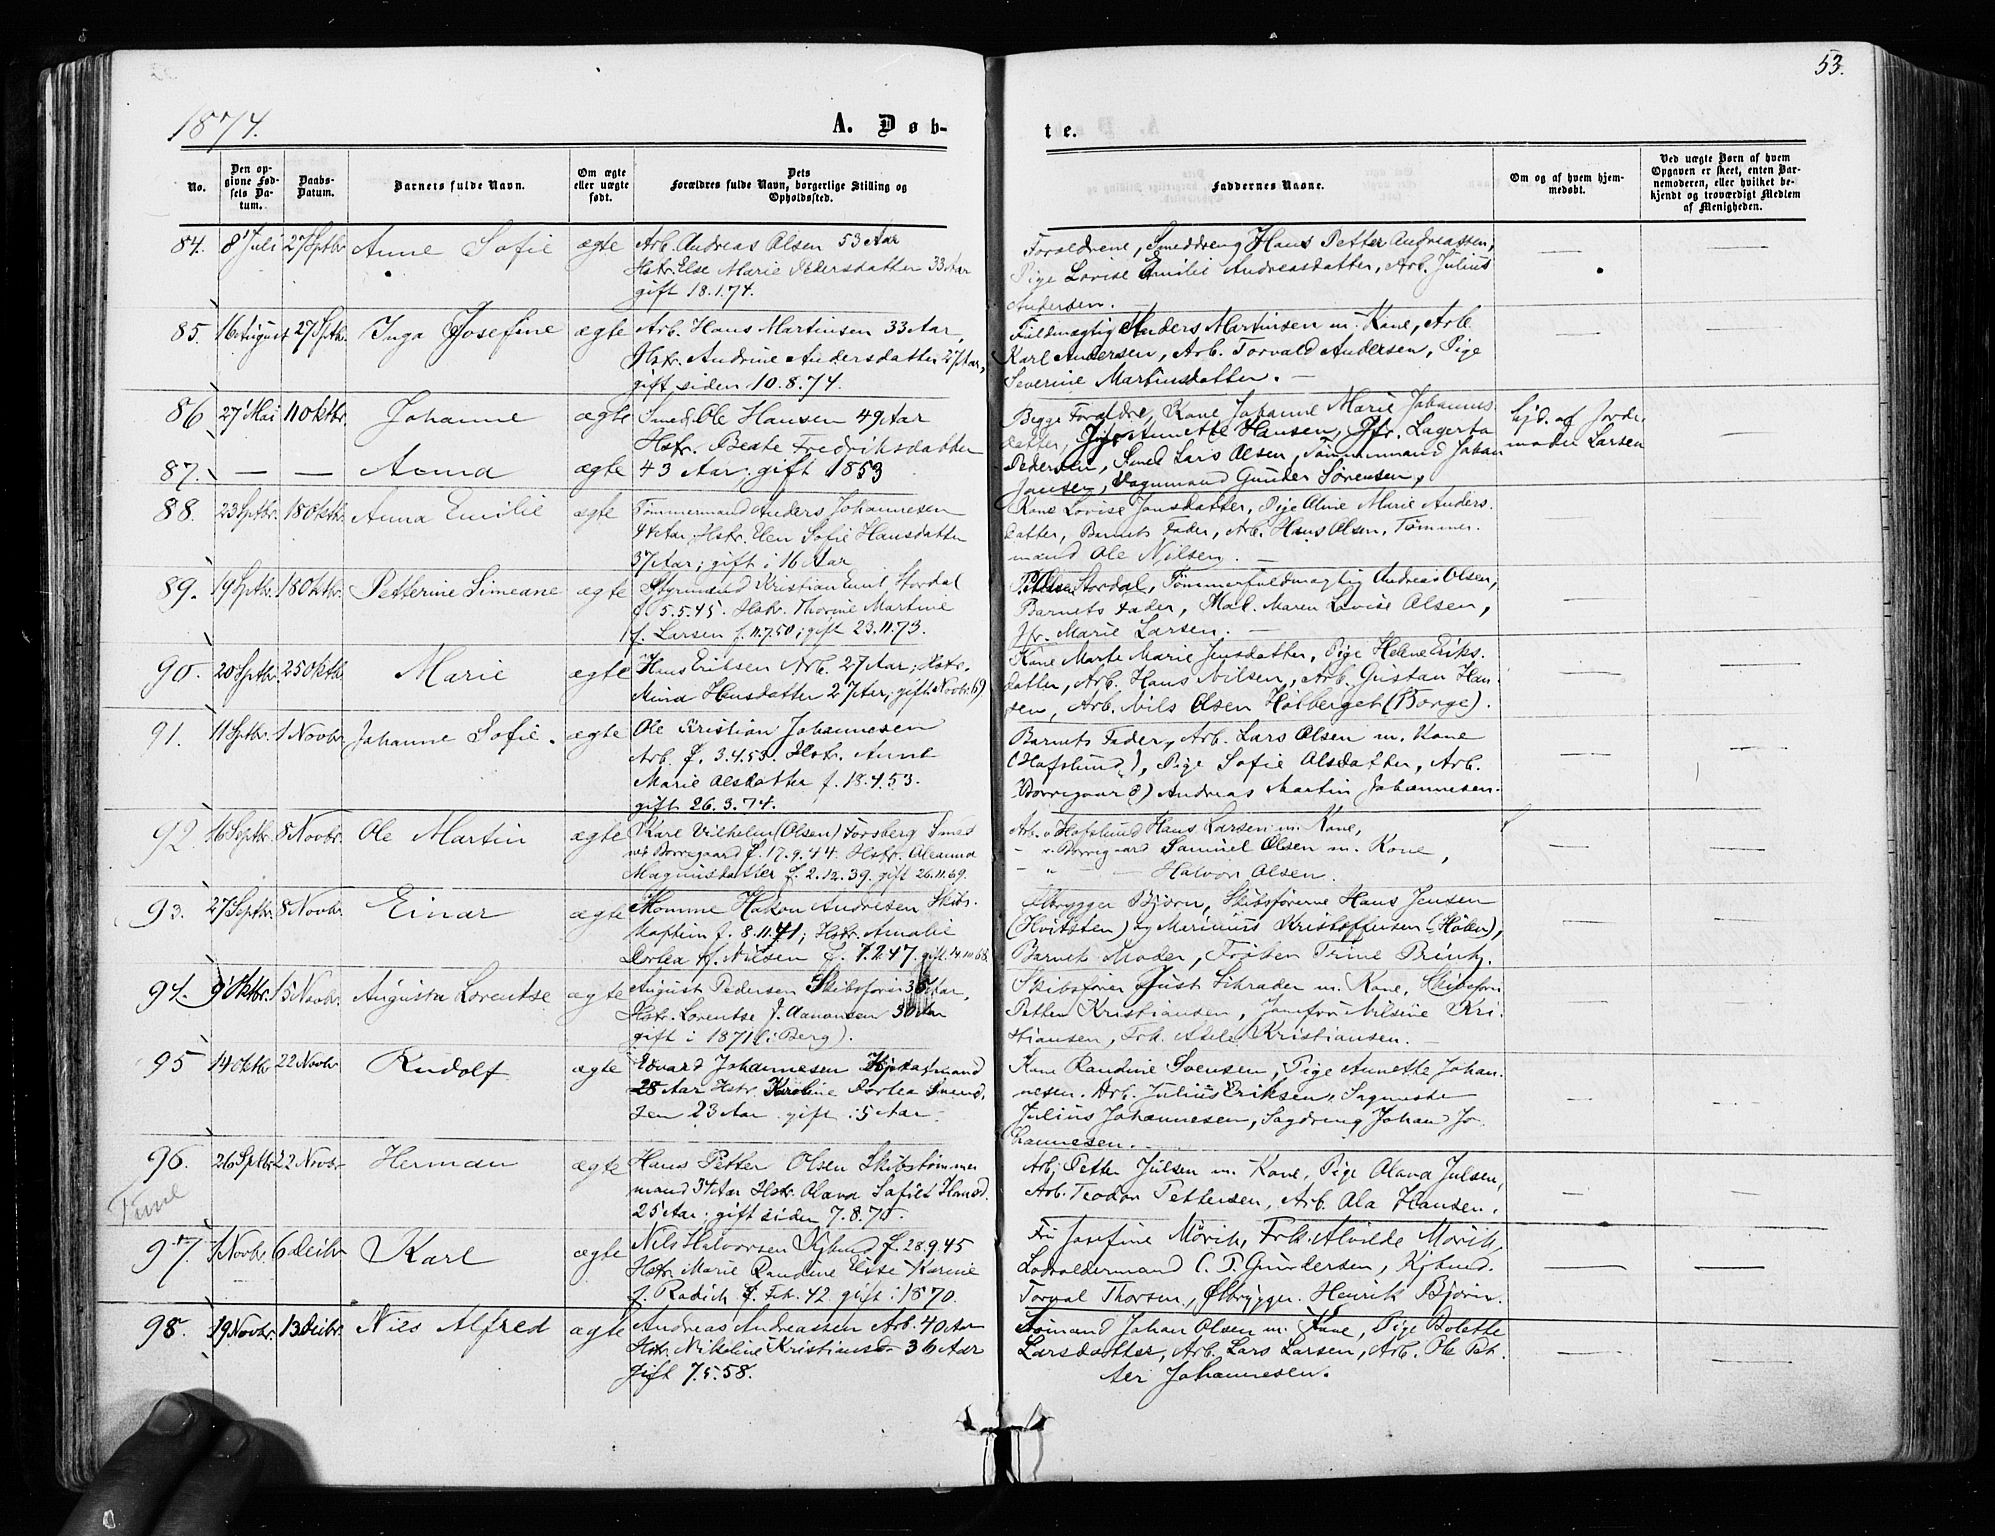 53.
1874.
A. Døb-
te.
No.
Den opgivne Fødsels Datum.
Daabs-Datum.
Barnets fulde Navn.
Om ægte eller uægte født.
Dets Forældres fulde Navn, borgerlige Stilling og Opholdssted.
Faddernes Navne.
Om og af hvem hjemmedøbt.
Ved uægte Børn af hvem Opgaven er skeet, enten Barnemoderen, eller hvilket bekjendt og troværdigt Medlem af Menigheden.
84. 8 Juli 27 Septbr. Anne Sofie ægte Arb. Andreas Olsen 53 Aar
Hstr. Else Marie Pedersdatter 33 Aar
gift 18.1.74.
Forældrene, Smeddreng Hans Petter Andreassen,
Pige Lovise Emilie Andreasdatter, Arb. Julius
Andersen.
85. 16 August 27 Sptbr. Inga Josefine ægte Arb. Hans Martinsen 33 Aar,
Hstr. Andrine Andersdatter 27 Aar,
gift siden 10.8.74.
Fuldmægtig Anders Martinsen m. Kone, Arb.
Karl Andersen, Arb. Torvald Andersen, Pige
Severine Martinsdatter.
86 27 Mai 11 Oktbr. Johanne ægte Smed Ole Hansen 49 Aar
Hstr. Beate Fredriksdatter
87. — — Anna ægte 43 Aar; gift 1853
Begge Forældre, Kone Johanne Marie Johannes-
datter, Jfr. Annette Hansen, Jfr. Lagerta
Pedersen, Smed Lars Olsen, Tømmermand Johan
Jansen, Vognmand Gunder Sørensen,
hjd. af Jorde-
moder Larsen
88. 23 Sptbr. 18 Oktbr. Anna Emilie ægte Tømmermand Anders Johannesen
44 Aar, Hstr. Elen Sofie Hansdatter
37 Aar; gift i 16 Aar
Kone Lovise Jonsdatter, Pige Aline Marie Anders-
datter, Barnets Fader, Arb. Hans Olsen, Tømmer-
mand Ole Nilsen.
89. 19 Sptbr. 18 Oktbr. Petterine Simeane ægte Styrmand Kristian Emil Stordal
f. 5.5.45. Hstr. Thorine Martine
f. Larsen f. 11.7.50; gift 23.11.73.
Stordal, Tømmerfuldmægtig Andreas Olsen,
Barnets Fader, Mad. Maren Lovise Olsen,
Jfr. Marie Larsen.
90. 20 Sptbr. 25 Oktb. Marie ægte Hans Eriksen Arb. 27 Aar; Hstr.
Hansdatter 27 Aar; gift Novbr.
Kone Marte Marie Jensdatter, Pige Helene Eriks-
datter, Arb. Hans Nilsen, Arb. Gustav Han-
sen, Arb. Nils Olsen Holberget (Borge).
91. 11 Sptbr. 1 Novbr Johanne Sofie. ægte Ole Kristian Johannesen
Arb. f. 3.4.53. Hstr. Anne
Marie Olsdatter f. 18.4.53.
gift 26.3.74.
Barnets Fader, Arb. Lars Olsen m. Kone
(Hafslund), Pige Sofie Olsdatter, Arb.
Borregaard) Andreas Martin Johannesen.
92. 16 Septbr. 8 Novbr. Ole Martin ægte Karl Vilhelm (Olsen) Forsberg Smed
ved Borregaard f. 17.9.44. Hstr. Oleanna
Magnusdatter f. 2.12.39. gift 26.11.69.
Arb. v. Hafslund Hans Larsen m. Kone,
— v. Borregaard Samuel Olsen m. Kone,
— " — — Halvor Olsen.
93. 27 Septbr. 8 Novbr. Einar ægte Momme Hakon Andresen Skibs-
kaptein f. 8.11.41; Hstr. Amalie
Dortea f. Nilsen f. 7.2.47. gift 14.11.68.
Ølbrygger Bjørn, Skibsførerne Hans Jensen
(Hvitsten) og Marinius Kristoffersen (Hølen),
Barnets Moder, Frøken Trine Brink.
94. 9 Oktbr. 15 Novbr. Augusta Lorentse ægte August Pedersen Skibsfører Aar,
Hstr. Lorentse f. Aanonsen 30 Aar
gift i 1871 (i Berg).
Skibsfører Just Schrader m. Kone, Skibsfører
Petter Kristiansen, Jomfru Nilsine Kri-
stiansen, Frk. Kristiansen.
95 14 Oktbr 22 Novbr Rudolf ægte Edvard Johannesen
28 Aar Hstr Karoline Dortea
sen 23 Aar gift i 5 Aar
Kone Randine Svensen, Pige Annette Johan-
nesen. Arb. Julius Eriksen, Sagmester
Julius Johannesen, Sagdreng Johan Jo-
hannesen.
96. 26 Sptbr 22 Novbr Herman ægte Hans Petter Olsen Skibstømmer
mand 34 Aar Hstr. Olava Sofie Hansd.
25 Aar; gift siden 7.8.70.
Arb. Petter Julsen m. Kone, Pige Olava Julsen,
Arb. Teodor Pettersen, Arb. Ola Hansen.
Tune
97. 1 Novbr 6 Decbr Karl ægte Nils Halvorsen Kjbmd f. 28.9.45
Hstr. Marie Randine Elise Karine
f. Radich f. Feb. 42 gift i 1870.
Fru Josefine Mørik, Frk. Alvilde Mørik,
Lodsoldermand C. P. Gundersen, Kjbmd.
Torval Thorsen, Ølbrygger Henrik Bjørn.
98. 19 Novbr. 13 Decbr. Nils Alfred ægte Andreas Andreassen Arb. 40 Aar
Hstr. Nikoline Kristiansd 36 Aar
gift 7.5.58.
Sømand Johan Olsen m. Kone, Pige Bolette
Larsdatter, Arb. Lars Larsen, Arb. Ole Pet-
ter Johannesen.